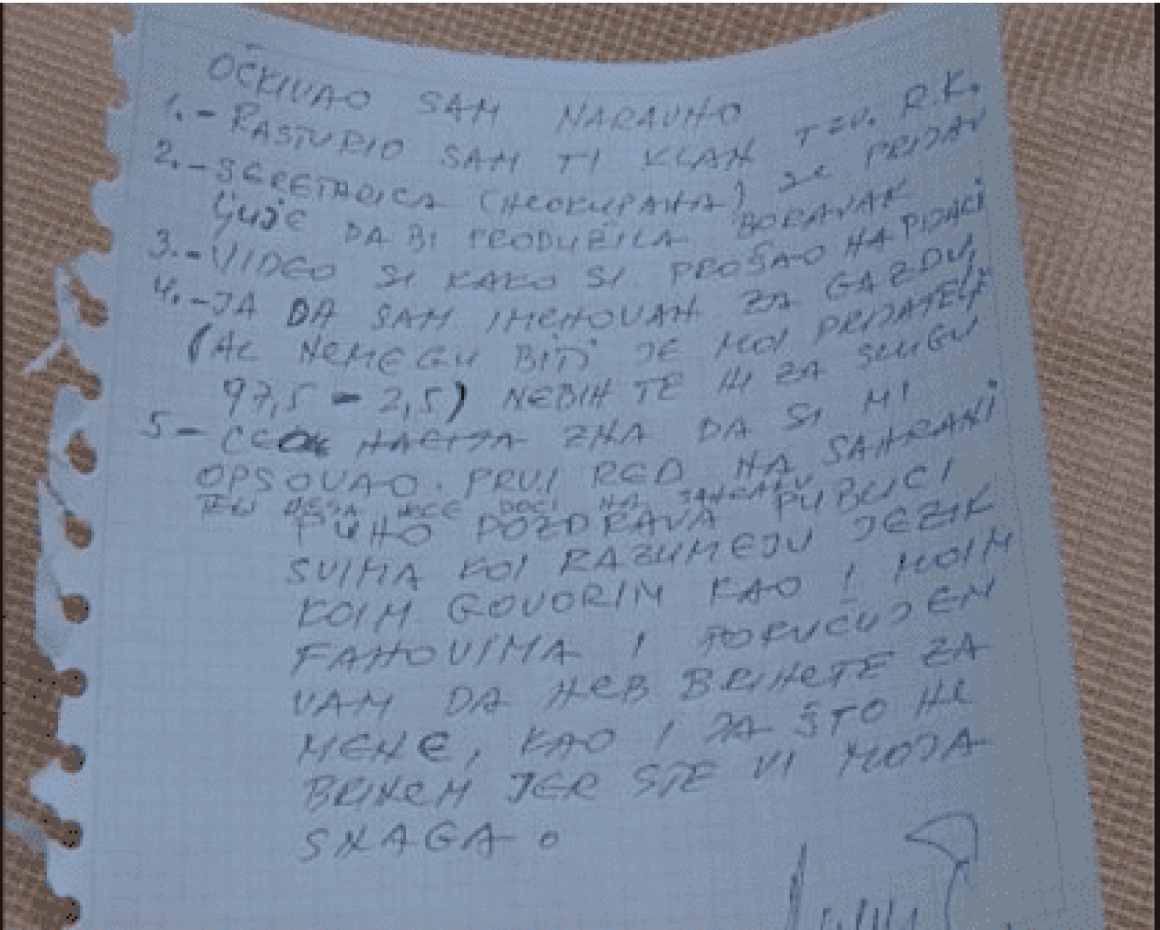 OČKIVAO SAM NARAVNO
1.- RASTURIO SAM TI KLAN TZV. R.K.
2.- SEKRETARICA (NEOKUPANA) SE PRIJAV
LJUJE DA BI PRODUŽILA BORAVAK
3.- VIDEO SI KAKO SI PROŠAO NA PIJACI
4.- JA DA SAM IMENOVAN ZA GAZDU,
(AL NEMEGU BITI JE MOI PRIJATELJ
97,5 - 2,5) NEBIH TE NI ZA SLUGU
5 - NACIJA ZNA DA SI MI
OPSOVAO. PRVI RED NA SAHRANI
DOĆI NA SAHRANU
PUNO POZDRAVA PUBLICI
SVIMA KOI RAZUMEJU JEZIK
KOIM GOVORIM KAO I MOIM
FANOVIMA I PORUCUJEM
VAM DA NEB BRINETE ZA
MENE, KAO I JA ŠTO NE
BRINEM JER STE VI MOJA
SNAGA.